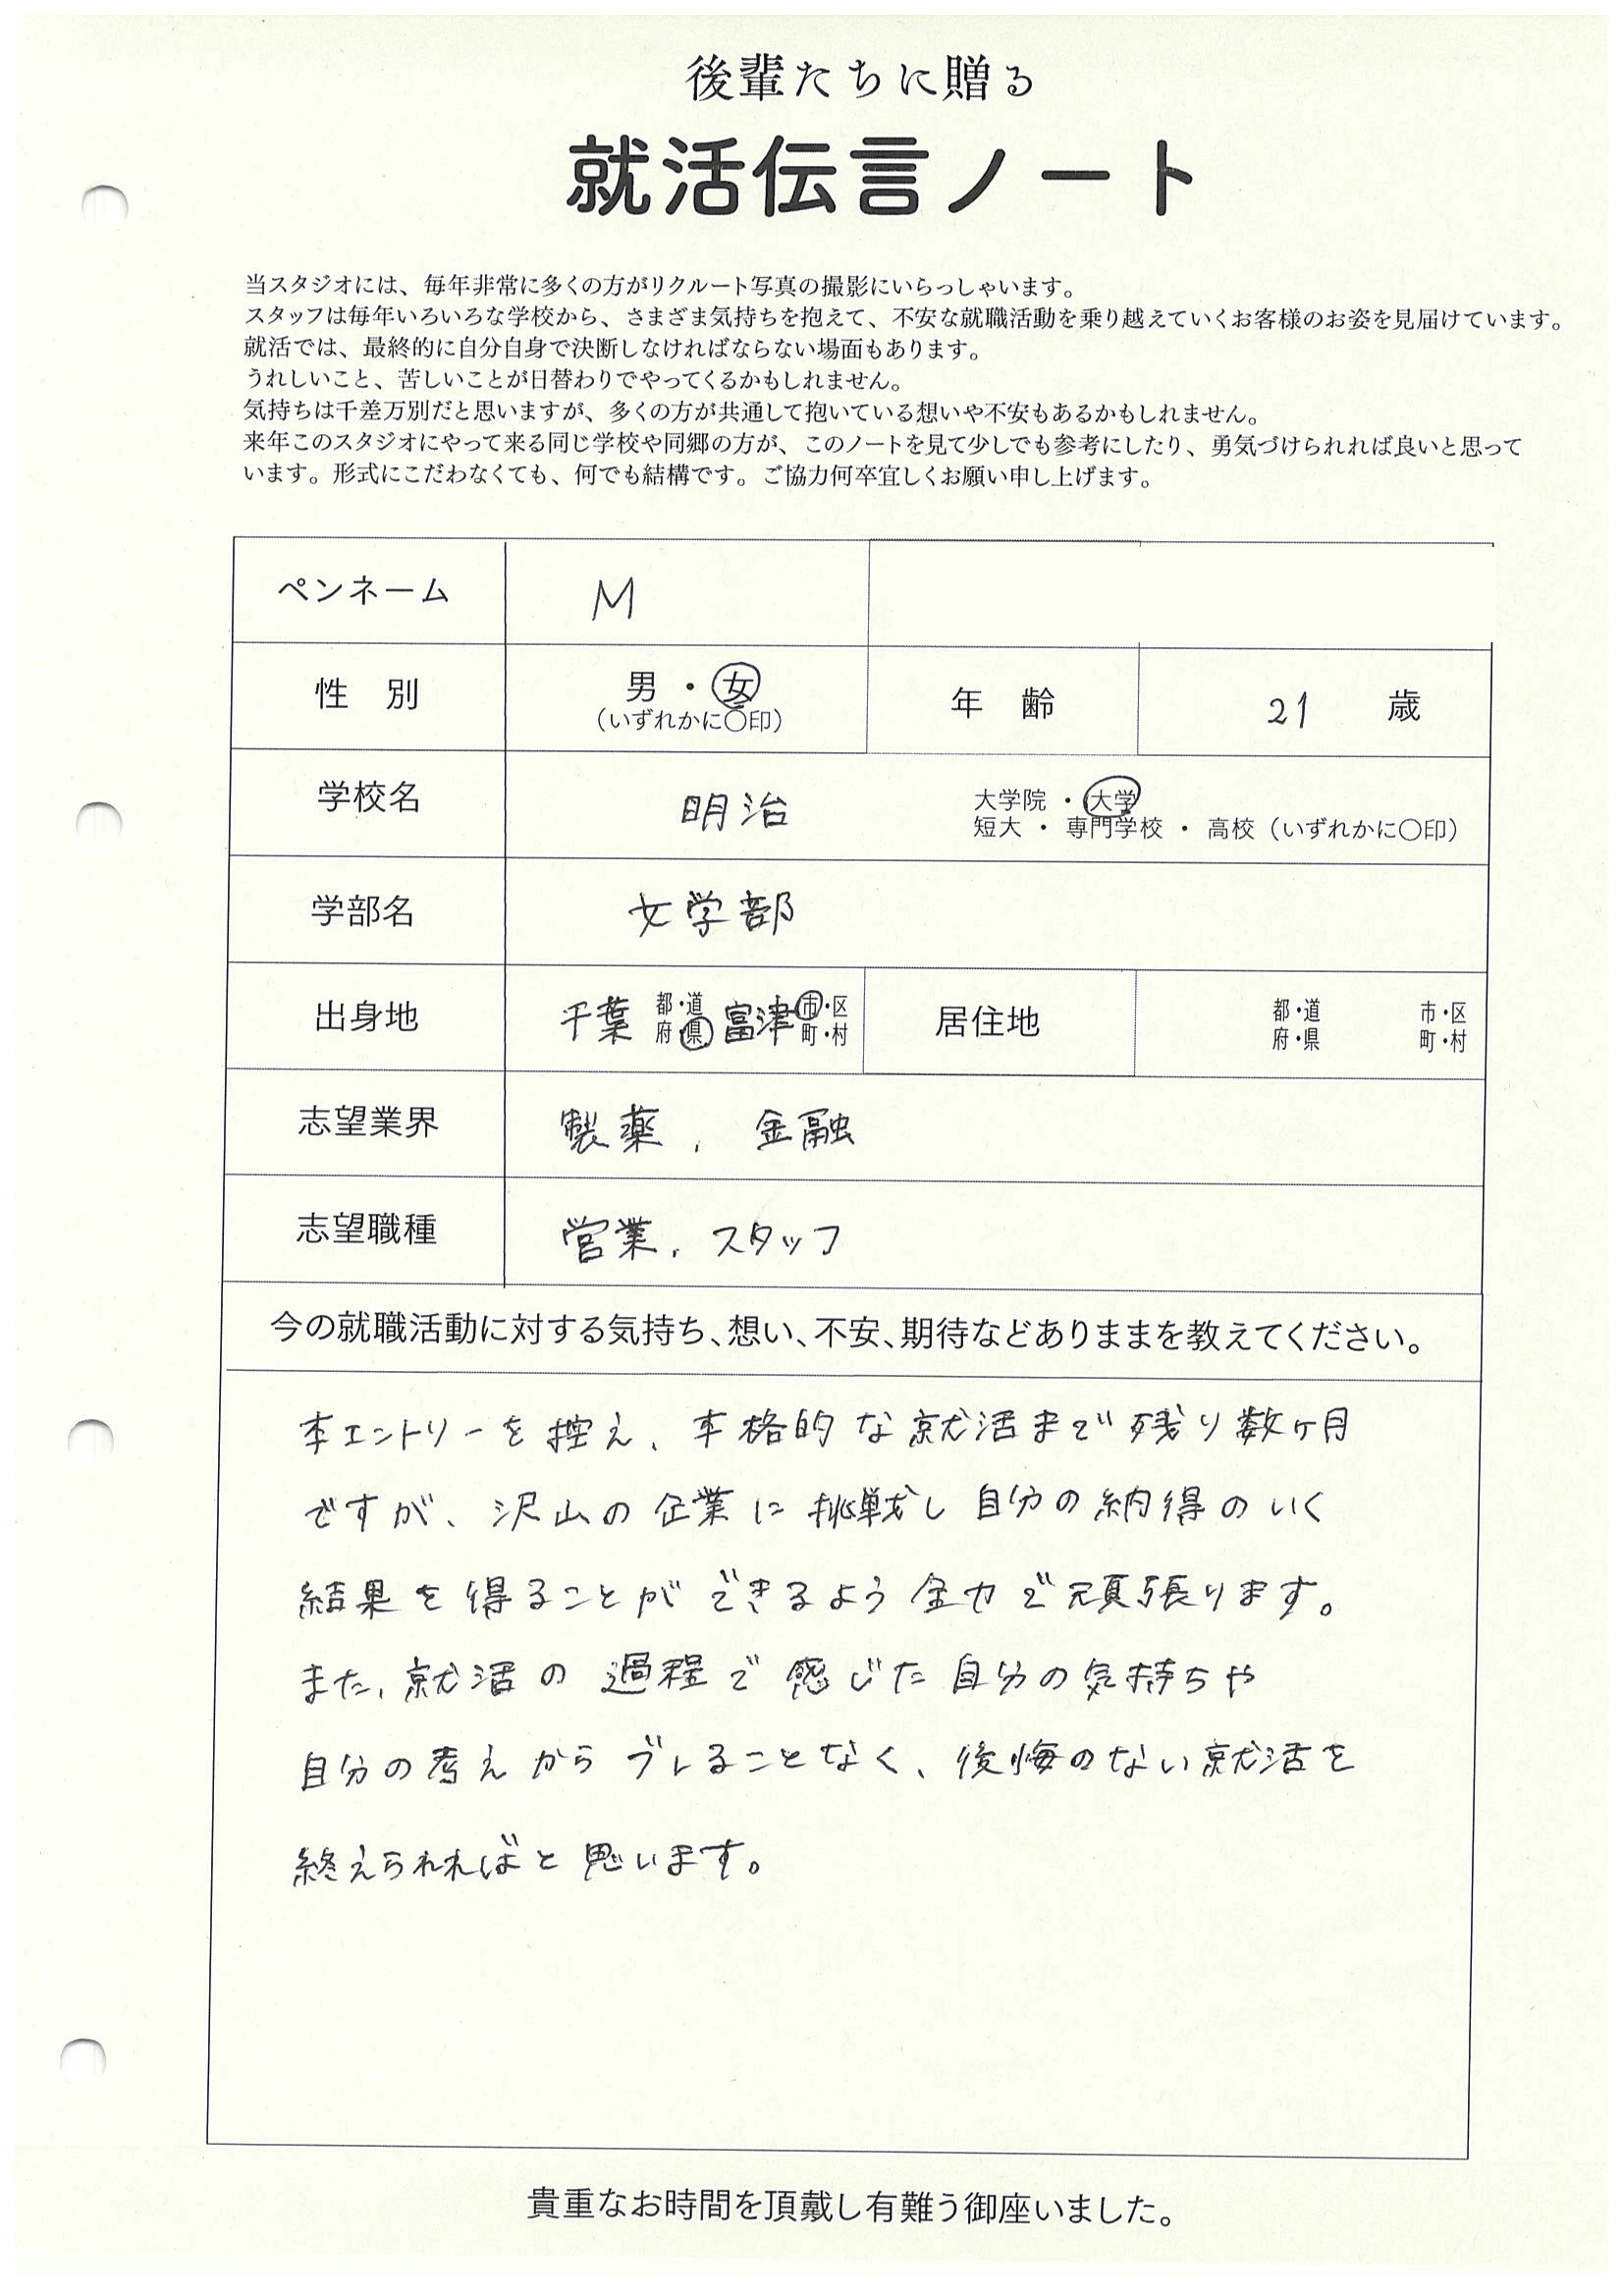 後輩たちに贈る
就活伝言ノート
当スタジオには、毎年非常に多くの方がリクルート写真の撮影にいらっしゃいます。
スタッフは毎年いろいろな学校から、さまざま気持ちを抱えて、不安な就職活動を乗り越えていくお客様のお姿を見届けています。
就活では、最終的に自分自身で決断しなければならない場面もあります。
うれしいこと、苦しいことが日替わりでやってくるかもしれません。
気持ちは千差万別だと思いますが、多くの方が共通して抱いている想いや不安もあるかもしれません。
来年このスタジオにやって来る同じ学校や同郷の方が、このノートを見て少しでも参考にしたり、勇気づけられれば良いと思って
います。形式にこだわなくても、何でも結構です。ご協力何卒宜しくお願い申し上げます。
ペンネーム M
性 別 男 ・ 女 (いずれかに〇印) 年 齢 21 歳
学校名 明治 大学院 ・ 大学
短大 ・ 専門学校 ・ 高校 (いずれかに〇印)
学部名 文学部
出身地 千葉 都・道 府・県 富津 市・区 町・村 居住地 都・道 府・県 市・区 町・村
志望業界 製薬, 金融
志望職種 営業, スタッフ
今の就職活動に対する気持ち、想い、不安、期待などありままを教えてください。
本エントリーを控え、本格的な就活まで残り数ヶ月
ですが、沢山の企業に挑戦し自分の納得のいく
結果を得ることができるよう全力で頑張ります。
また、就活の過程で感じた自分の気持ちや
自分の考えからブレることなく、後悔のない就活を
終えられればと思います。
貴重なお時間を頂戴し有難う御座いました。